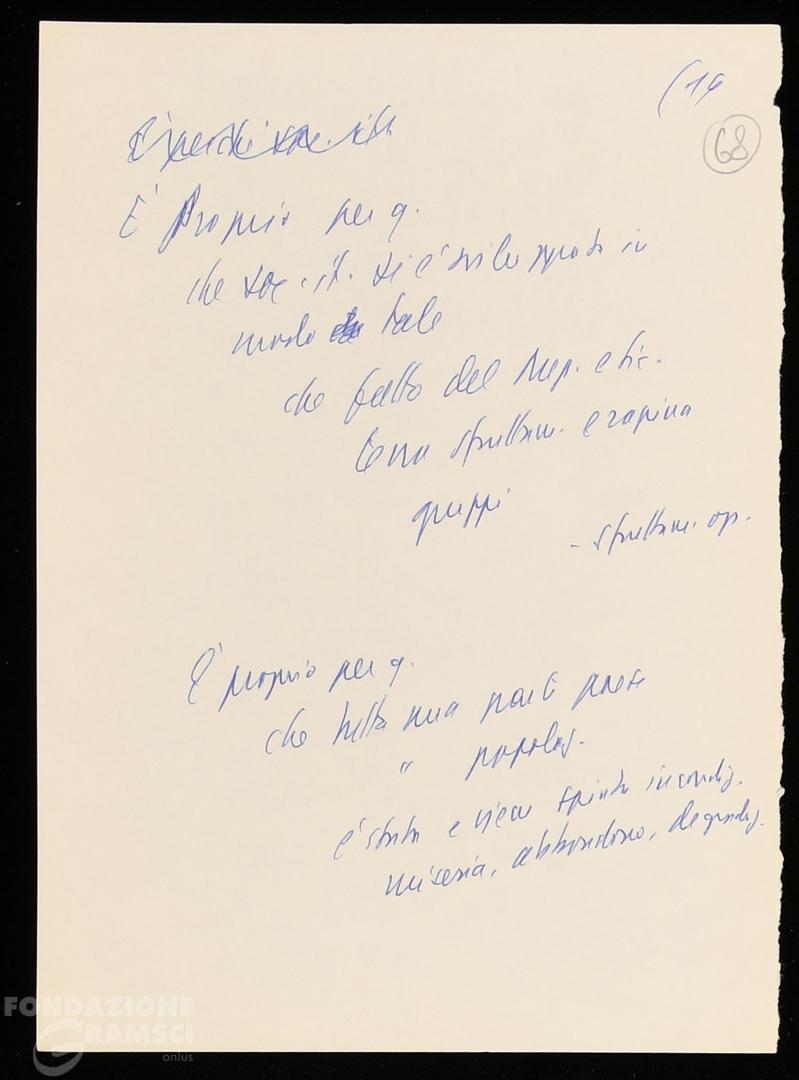 (14
68
È proprio per q.
che soc. it. si è sviluppata in
modo tale
che fatto del
sfruttam. e rapina
gruppi
- sfruttam. op.
È proprio per q.
che tutta una parte paese
" popolaz.
è stata e viene spinta in condiz.
miseria, abbandono, degradaz.
FONDAZIONE
GRAMSCI
onlus